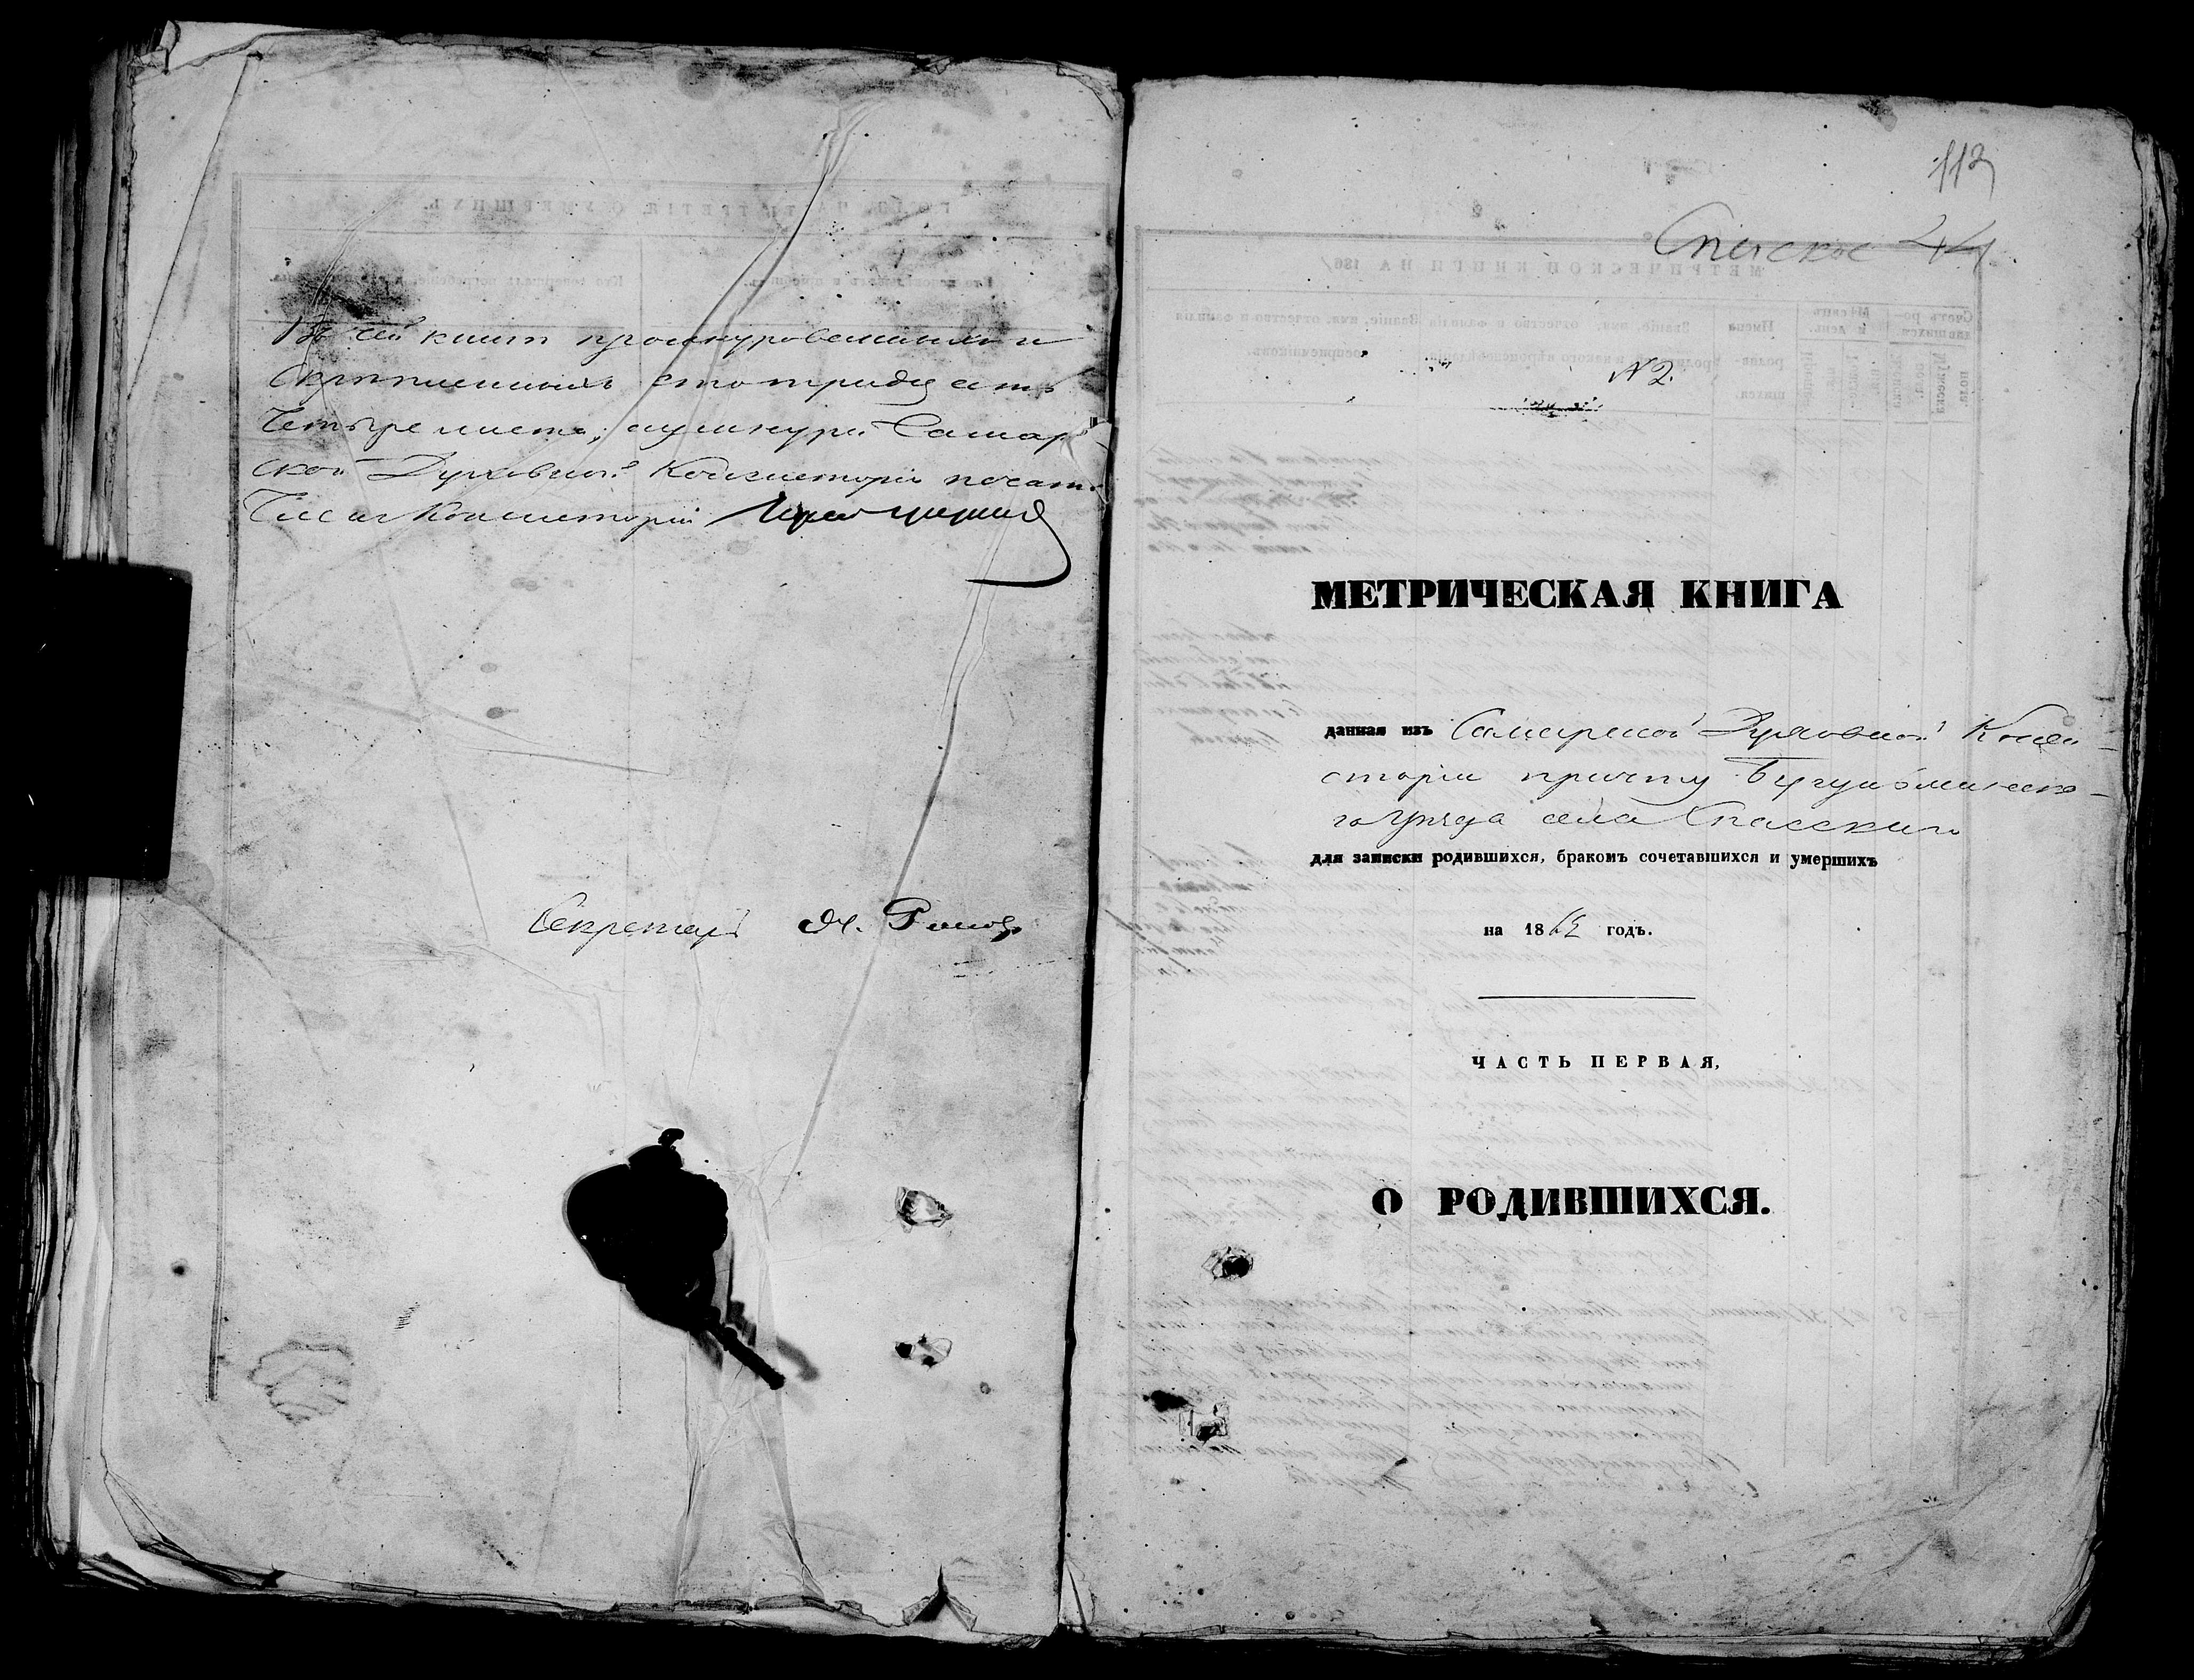 Въ сей книгѣ прошнурованныхъ и
скрѣпленныхъ сто тридцать
четыре листа, шнуръ Самар
ской Духовной Консисторіи печат.
Членъ Консисторіи
Секретарь
113
Спаское 44.
№ 2.
МЕТРИЧЕСКАЯ КНИГА
данная изъ Самарской Духовной Конси-
сторіи причту Бугульминска-
го Уѣзда села Спасскаго
для записки родившихся, бракомъ сочетавшихся и умершихъ
на 18 годъ.
ЧАСТЬ ПЕРВАЯ,
О РОДИВШИХСЯ.